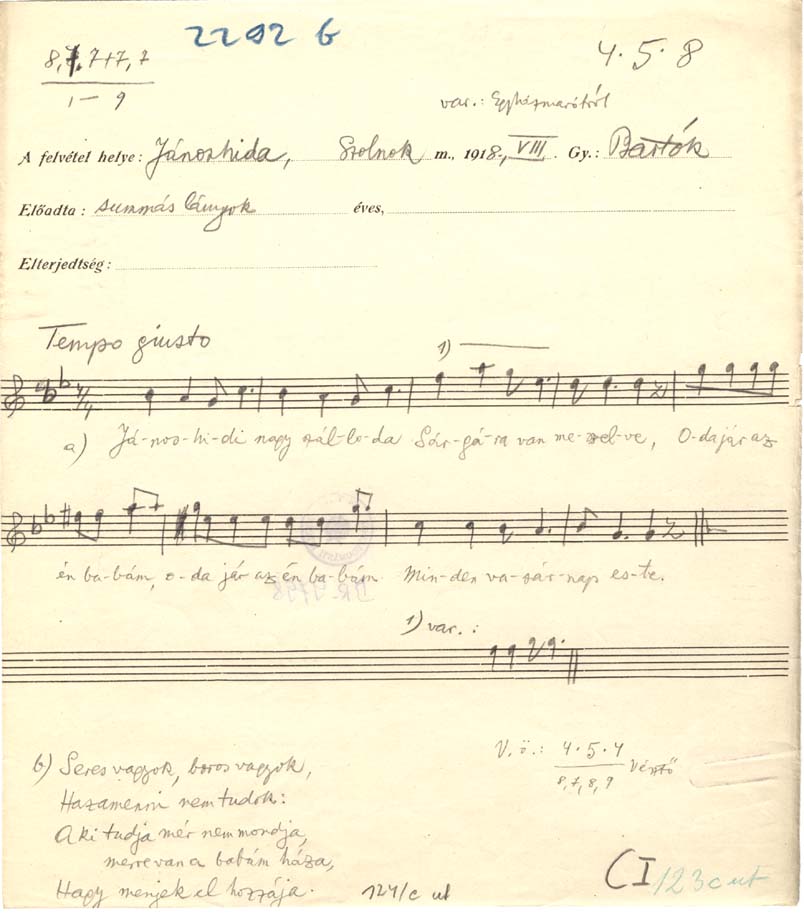 2292 b
8, 7, 7+7, 7
1 – 9
4. 5. 8
var.: Egyházmarótról
A felvétel helye: Jánoshida, Szolnok m., 1918., VIII. Gy.: Bartók
Előadta: summás lányok éves,
Elterjedtség:
Tempo giusto
1)
a) Já-nos-hi-di nagy szál-lo-da Sár-gá-ra van me-szel-ve, O-da jár az
én ba-bám, o-da jár az én ba-bám Min-den va-sár-nap es-te.
1) var.:
b) Seres vagyok, boros vagyok,
Hazamenni nem tudok:
Aki tudja mér nem mondja,
merre van a babám háza,
Hagy menjek el hozzája.
V. ö.: 4. 5. 4 Vésztő
8, 7, 8, 9
124/c ut
CI 123c ut